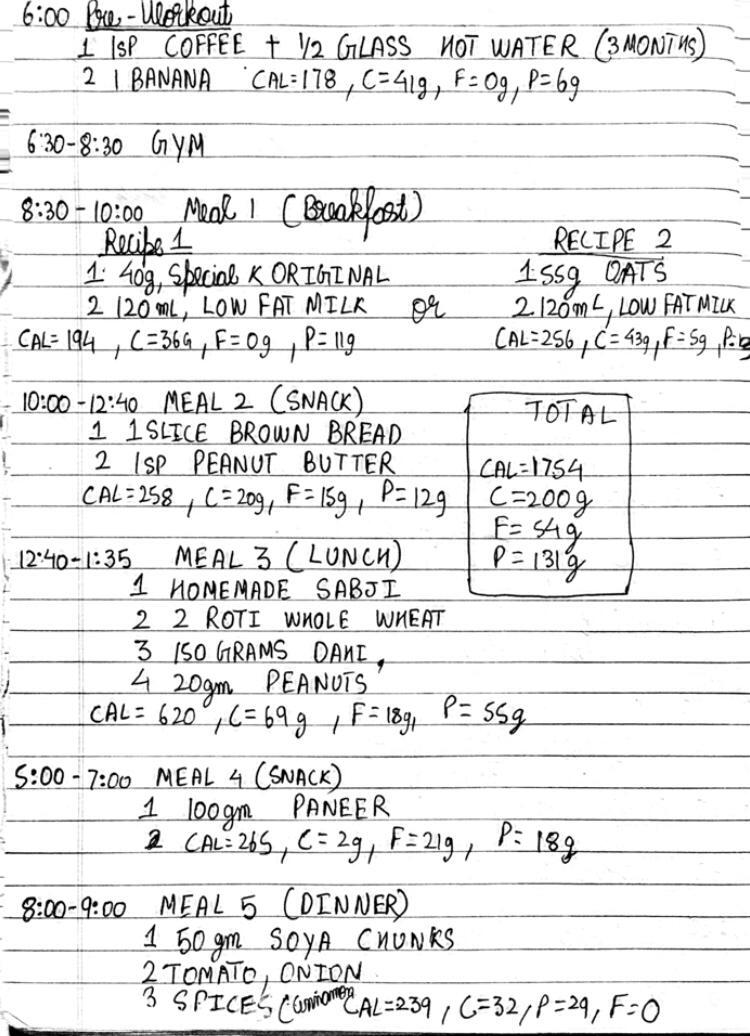 6:00 Pre-Workout
1 1sp COFFEE + 1/2 GLASS HOT WATER (3 MONTHS)
2 1 BANANA CAL=178, C=41g, F=0g, P=6g
6:30-8:30 GYM
8:30-10:00 Meal 1 (Breakfast)
Recipe 1 RECIPE 2
1. 40g, Special K ORIGINAL 1. 55g OATS
2 120mL, LOW FAT MILK or 2. 120mL, LOW FAT MILK
CAL=194, C=36G, F=0g, P=11g CAL=256, C=43g, F=5g, P=
10:00-12:40 MEAL 2 (SNACK)
1 1 SLICE BROWN BREAD
2 1SP PEANUT BUTTER
CAL=258, C=20g, F=15g, P=12g
TOTAL
CAL=1754
C=200g
F=54g
P=131g
12:40-1:35 MEAL 3 (LUNCH)
1 HOMEMADE SABJI
2 2 ROTI WHOLE WHEAT
3 150 GRAMS DAHI,
4 20gm PEANUTS
CAL=620, C=69g, F=18g, P=55g
5:00-7:00 MEAL 4 (SNACK)
1 100gm PANEER
2 CAL=265, C=2g, F=21g, P=18g
8:00-9:00 MEAL 5 (DINNER)
1 50 gm SOYA CHUNKS
2 TOMATO, ONION
3 SPICES (Cinnamon CAL=239, C=32, P=29, F=0